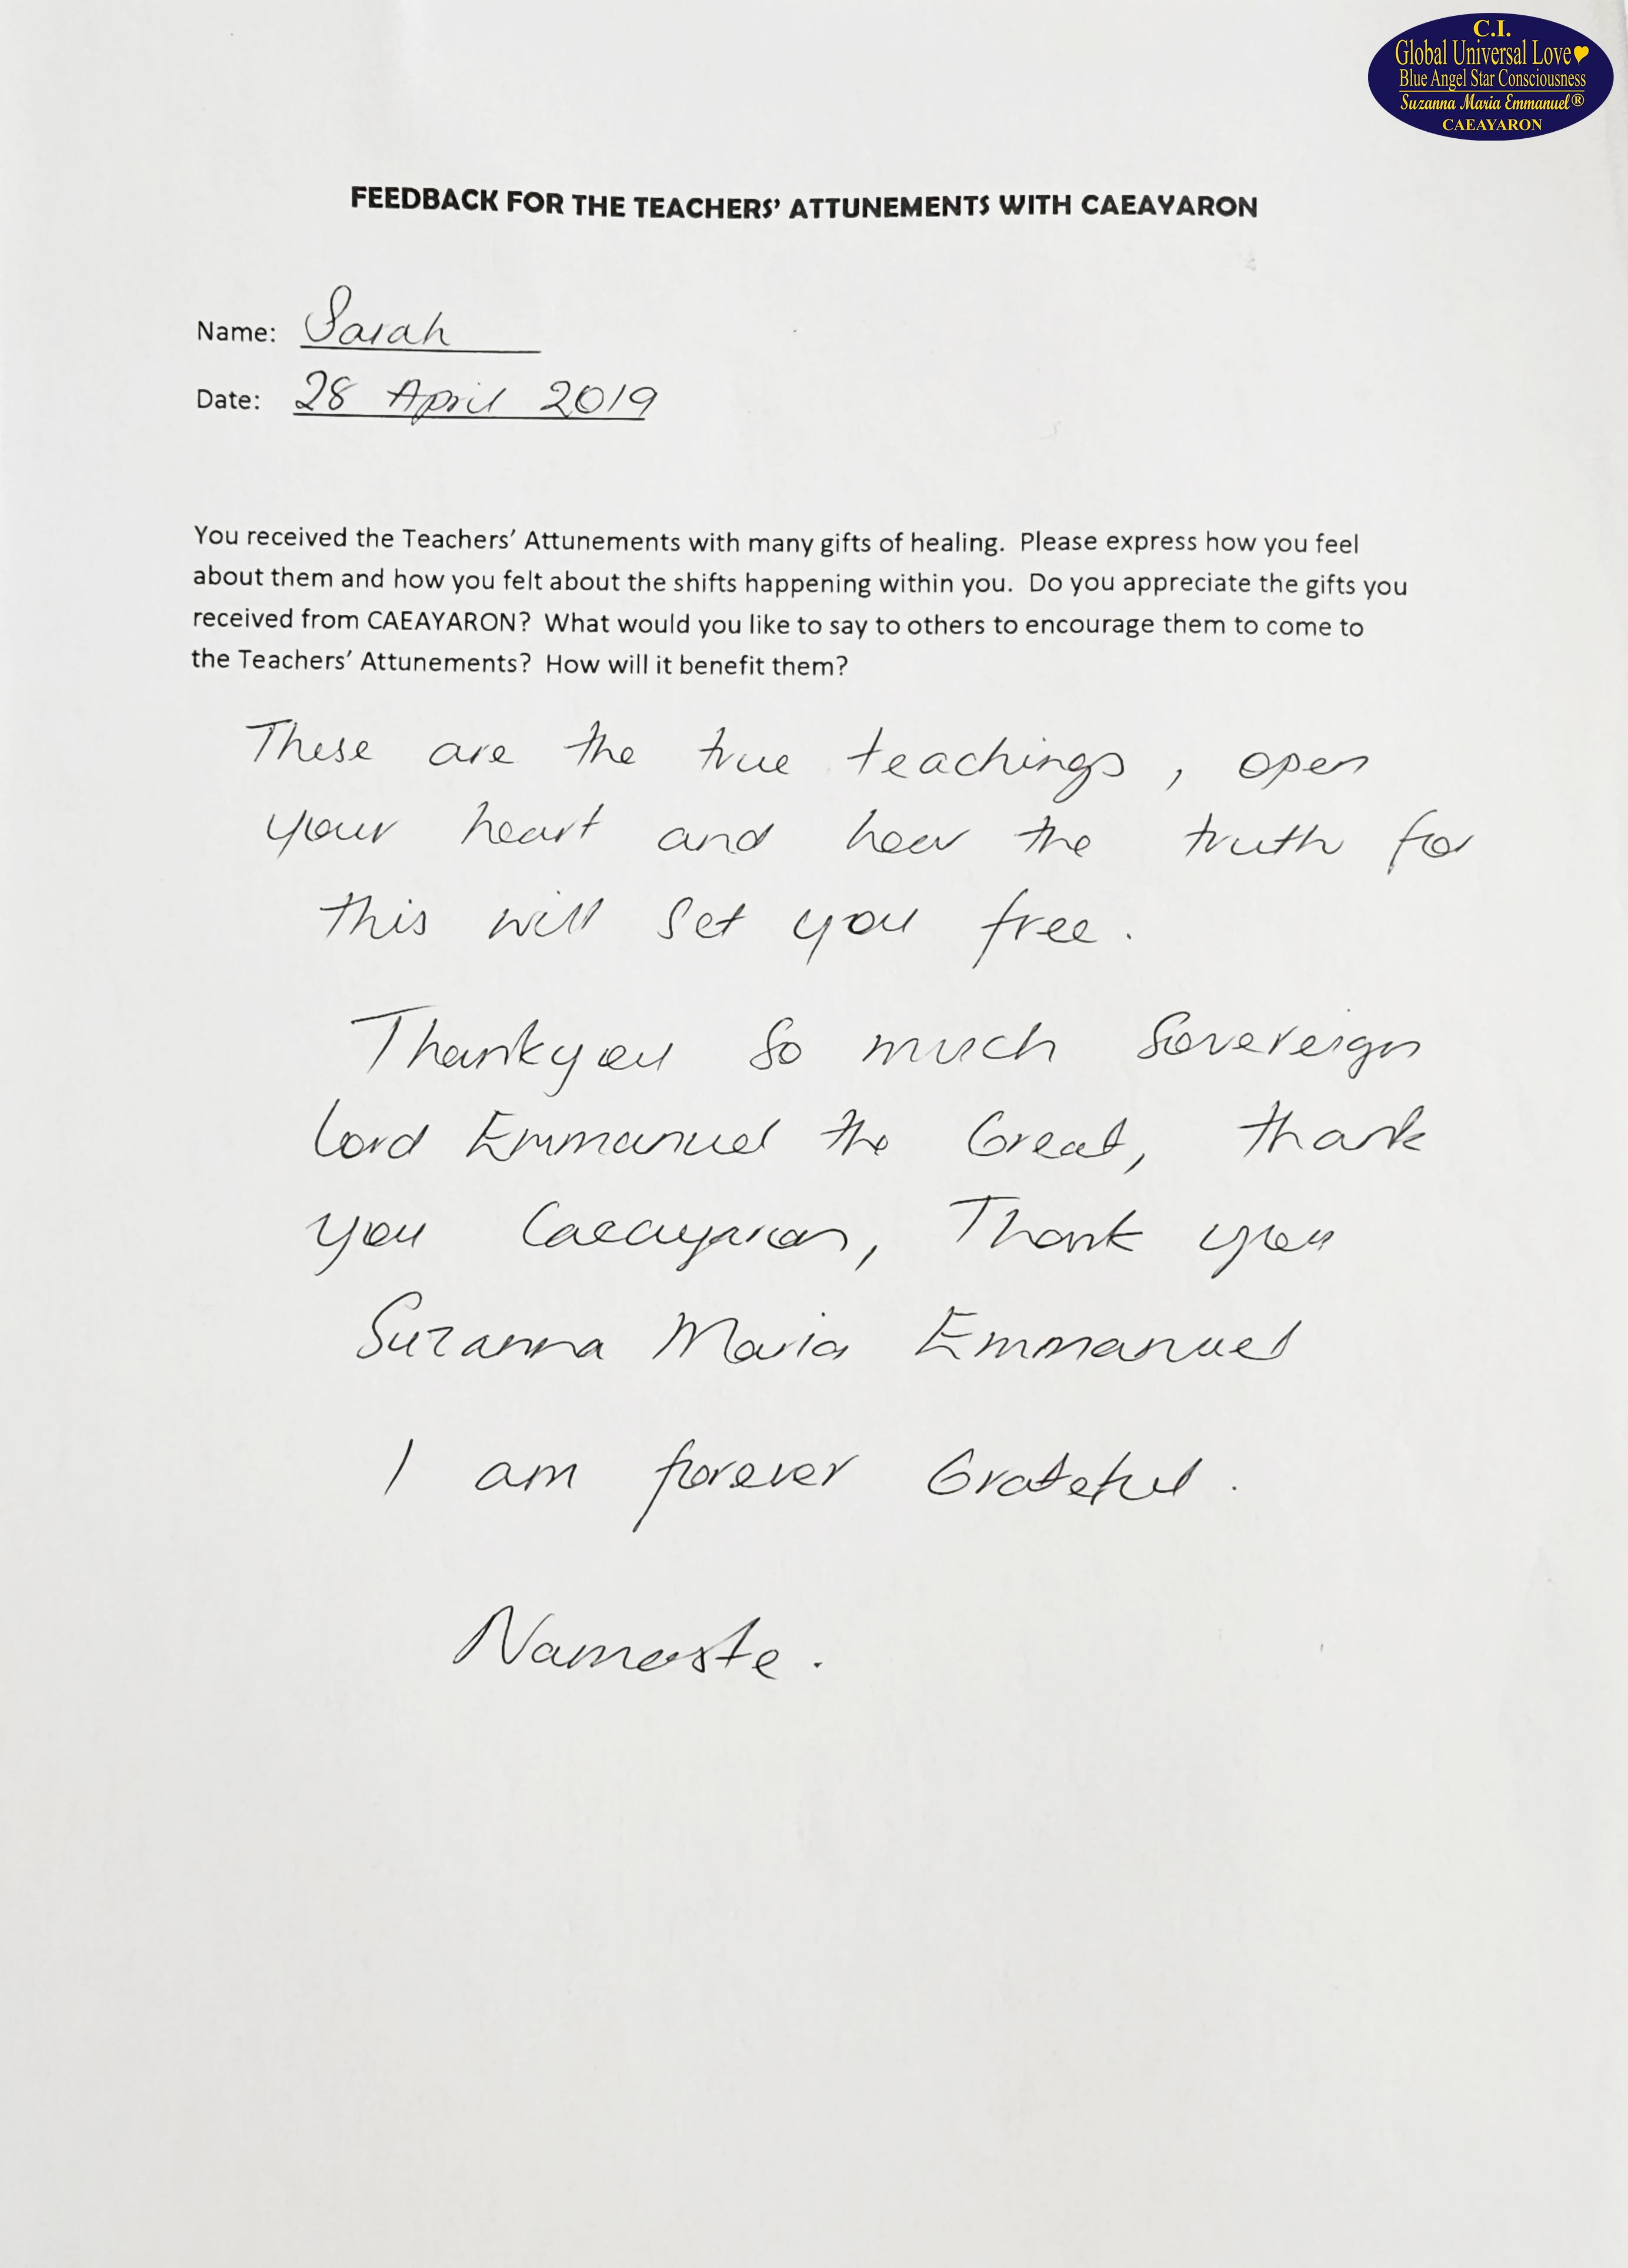 C.I.
Global Universal Love
Blue Angel Star Consciousness
Suzanna Maria Emmanuel®
CAEAYARON
FEEDBACK FOR THE TEACHERS' ATTUNEMENTS WITH CAEAYARON
Name: Sarah
Date: 28 April 2019
You received the Teachers' Attunements with many gifts of healing. Please express how you feel
about them and how you felt about the shifts happening within you. Do you appreciate the gifts you
received from CAEAYARON? What would you like to say to others to encourage them to come to
the Teachers' Attunements? How will it benefit them?
These are the true teachings, open
your heart and hear the truth for
this will set you free.
Thankyou so much Sovereign
Lord Emmanuel the Great, thank
you Caeayaron, Thank you
Suzanna Maria Emmanuel
I am forever Grateful.
Namaste.